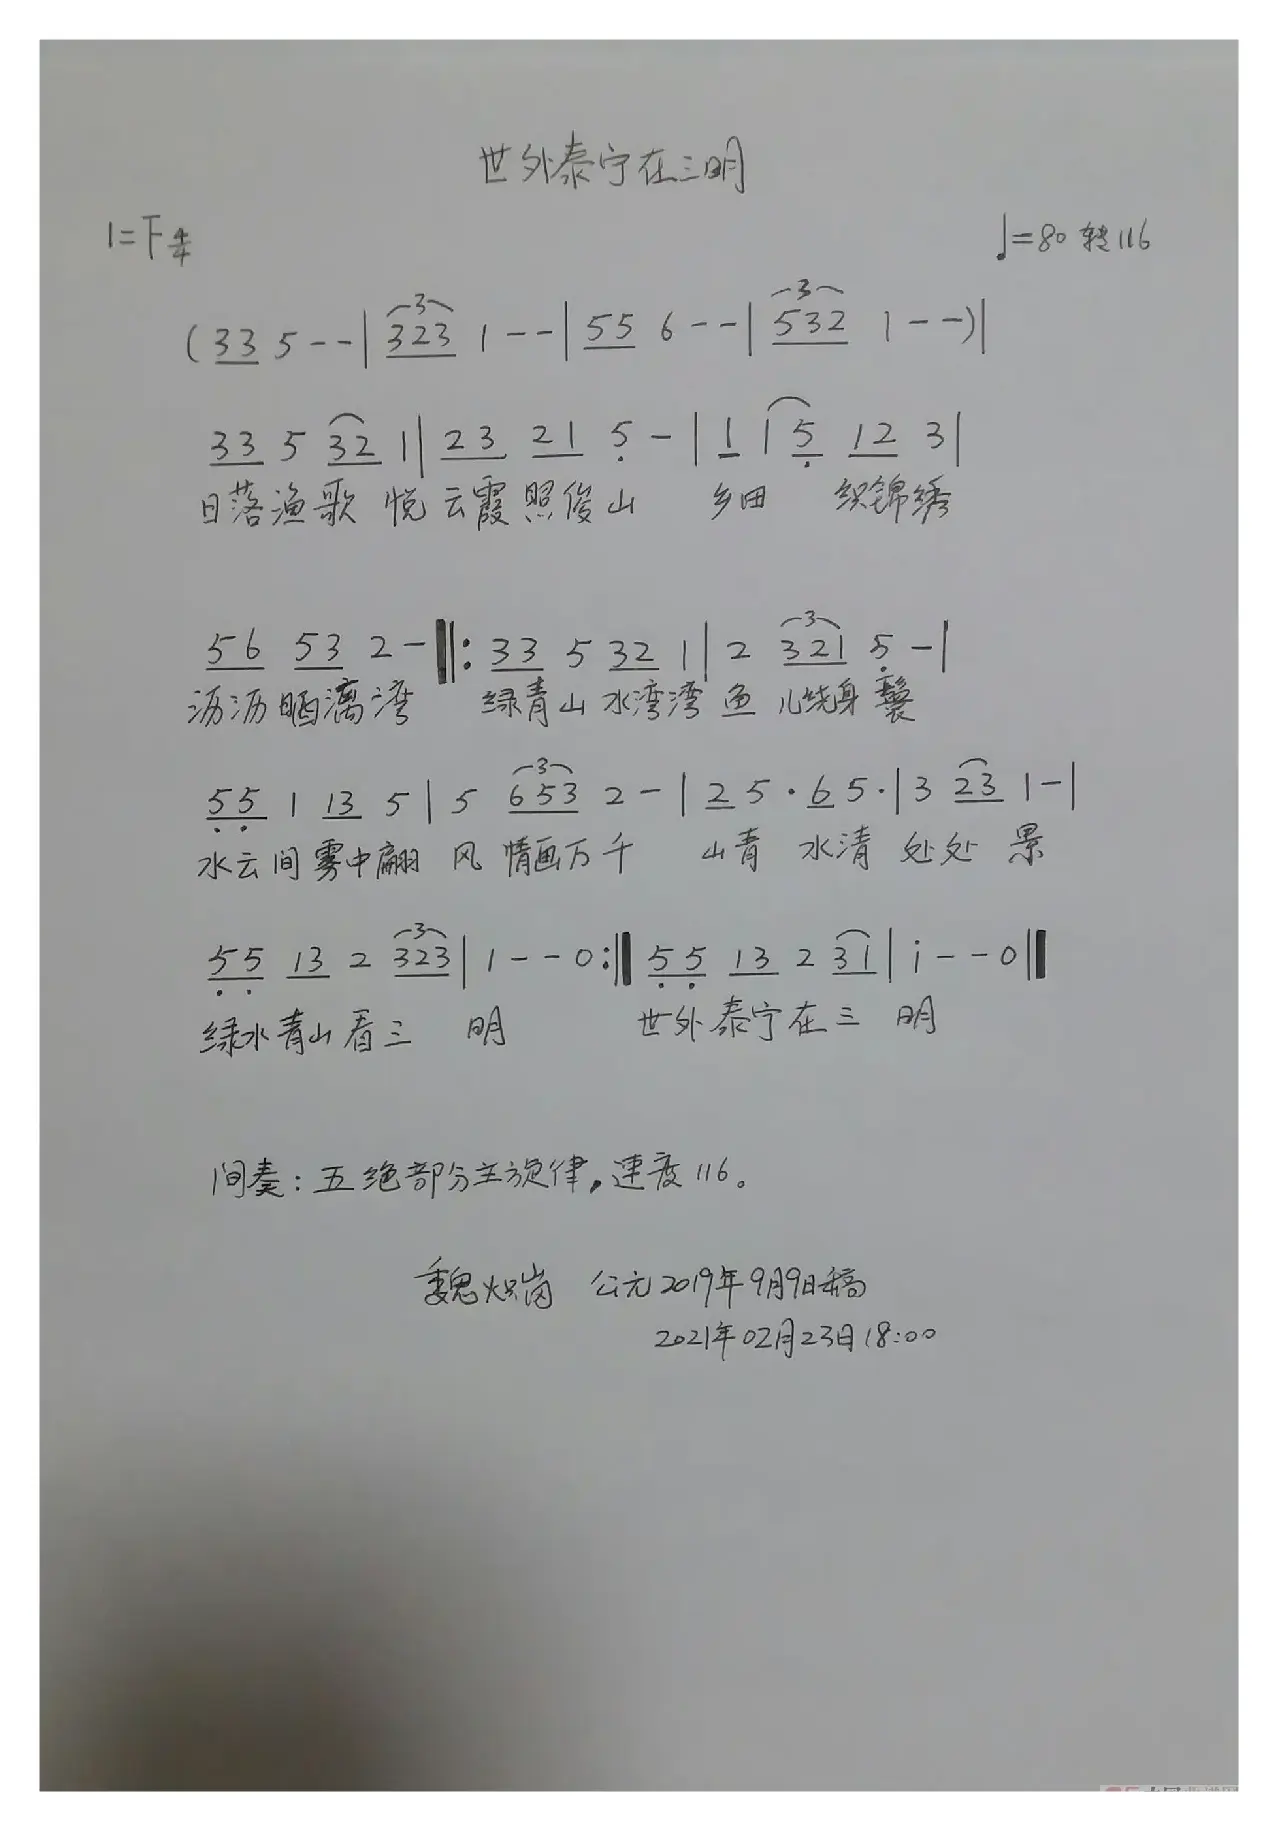 世外泰宁在三明
1=F 4/4 ♩=80 转116
(33 5 - - | 323 1 - - | 55 6 - - | 532 1 - -)|
3
3
33 5 32 1 | 23 21 5 - | 1 1 5 12 3 |
日落渔歌 悦 云霞照俊山 乡田 织锦绣
56 53 2 - ‖: 33 5 32 1 | 2 321 5 - |
3
沥沥晒漓湾 绿青山水湾湾 鱼 儿绕身鬟
55 1 13 5 | 5 653 2 - | 2 5 · 6 5 · | 3 23 1 - |
3
水云间雾中翩 风 情画万千 山青 水清 处处 景
55 13 2 323 | 1 - - 0 :‖ 55 13 2 31 | i - - 0 ‖
3
绿水青山看三 明 世外泰宁在三 明
间奏:五绝部分主旋律,速度116。
魏炽岗 公元2019年9月9日稿
2021年02月23日18:00